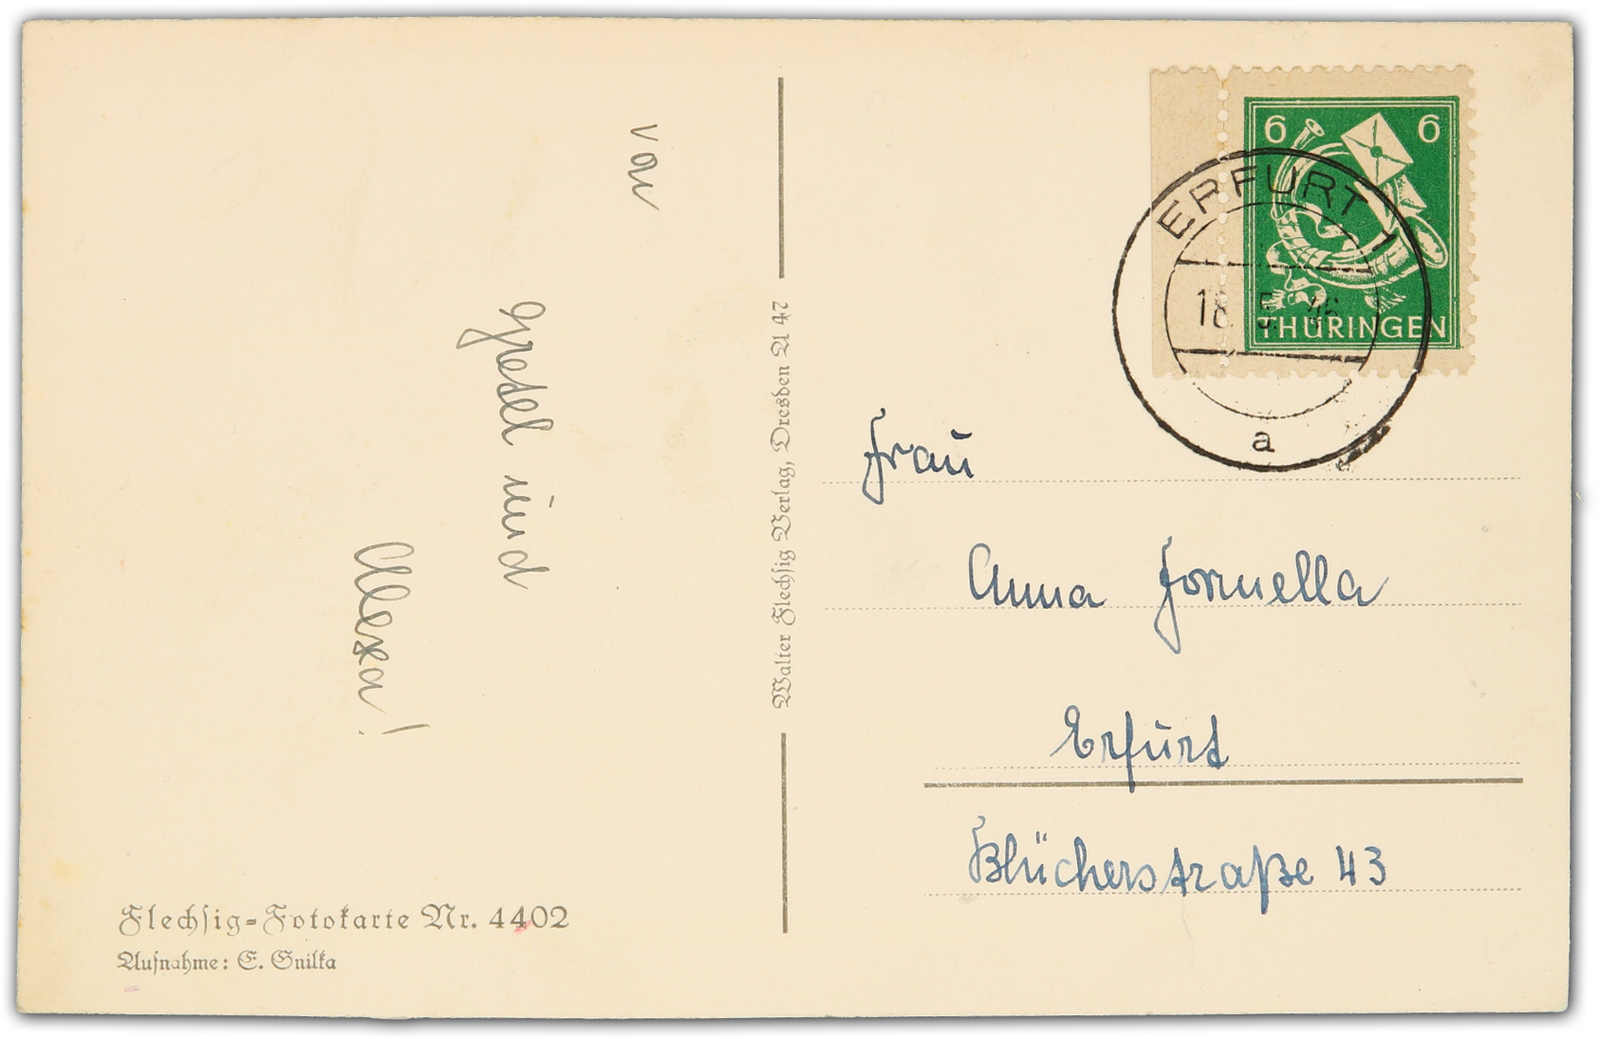 von
Gretel und
Alexa!
Flechsig-Fotokarte Nr. 4402
Aufnahme: E. Gnilka
Walter Flechsig Verlag, Dresden A 47
6 6
THÜRINGEN
ERFURT 1
18. 5. 46
a
Frau
Anna Fornella
Erfurt
Blücherstraße 43